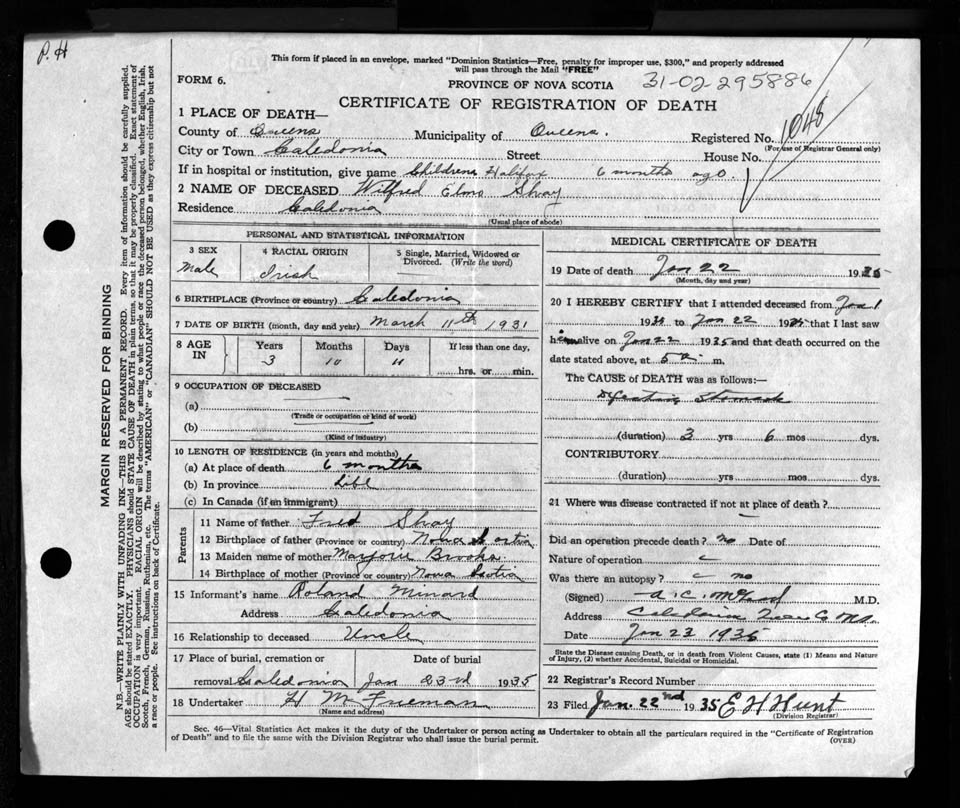 P. H
This form if placed in an envelope, marked "Dominion Statistics—Free, penalty for improper use, $300," and properly addressed
will pass through the Mail "FREE"
FORM 6.
PROVINCE OF NOVA SCOTIA
31-02-295886
CERTIFICATE OF REGISTRATION OF DEATH
1 PLACE OF DEATH—
County of Queens Municipality of Queens. Registered No. 1048
(For use of Registrar General only)
City or Town Caledonia Street House No.
If in hospital or institution, give name Childrens Halifax 6 months ago.
2 NAME OF DECEASED Wilfred Elmo Shay
Residence Caledonia
(Usual place of abode)
PERSONAL AND STATISTICAL INFORMATION
3 SEX
Male
4 RACIAL ORIGIN
Irish
5 Single, Married, Widowed or
Divorced. (Write the word)
6 BIRTHPLACE (Province or country) Caledonia
7 DATE OF BIRTH (month, day and year) March 11th 1931
8 AGE IN
Years Months Days If less than one day,
3 10 11 hrs. or min.
9 OCCUPATION OF DECEASED
(a)
(Trade or occupation or kind of work)
(b)
(Kind of industry)
10 LENGTH OF RESIDENCE (in years and months)
(a) At place of death 6 months
(b) In province Life
(c) In Canada (if an immigrant)
Parents
11 Name of father Fred Shay
12 Birthplace of father (Province or country) Nova Scotia
13 Maiden name of mother Marjorie Brooks
14 Birthplace of mother (Province or country) Nova Scotia
15 Informant's name Roland Minard
Address Caledonia
16 Relationship to deceased Uncle
17 Place of burial, cremation or Date of burial
removal Caledonia Jan 23rd 1935
18 Undertaker H M Freeman
(Name and address)
MEDICAL CERTIFICATE OF DEATH
19 Date of death Jan 22 1935
(Month, day and year)
20 I HEREBY CERTIFY that I attended deceased from Jan 1
193 to Jan 22 193 that I last saw
him alive on Jan 22 1935 and that death occurred on
date stated above, at 5 a. m.
The CAUSE of DEATH was as follows:—
Stomach
(duration) 3 yrs 6 mos dys.
CONTRIBUTORY
(duration) yrs mos dys.
21 Where was disease contracted if not at place of death?
Did an operation precede death? no Date of
Nature of operation
Was there an autopsy? no
(Signed) A. C. M.D.
Address Caledonia
Date Jan 23 1935
State the Disease causing Death, or in death from Violent Causes, state (1) Means and Nature
of Injury, (2) whether Accidental, Suicidal or Homicidal.
22 Registrar's Record Number
23 Filed Jan. 22nd 1935 E H Hunt
(Division Registrar)
Sec. 46—Vital Statistics Act makes it the duty of the Undertaker or person acting as Undertaker to obtain all the particulars required in the "Certificate of Registration
of Death" and to file the same with the Division Registrar who shall issue the burial permit.
(OVER)
MARGIN RESERVED FOR BINDING
N.B.—WRITE PLAINLY WITH UNFADING INK—THIS IS A PERMANENT RECORD. Every item of information should be carefully supplied.
AGE should be stated EXACTLY. PHYSICIANS should STATE CAUSE OF DEATH in plain terms, so that it may be properly classified. Exact statement of
OCCUPATION is very important. RACIAL ORIGIN will be described by stating to what people or race the deceased person belonged, whether English, Irish,
Scotch, French, German, Russian, Ruthenian, etc. The terms "AMERICAN" or "CANADIAN" SHOULD NOT BE USED as they express citizenship but not
a race or people. See instructions on back of Certificate.